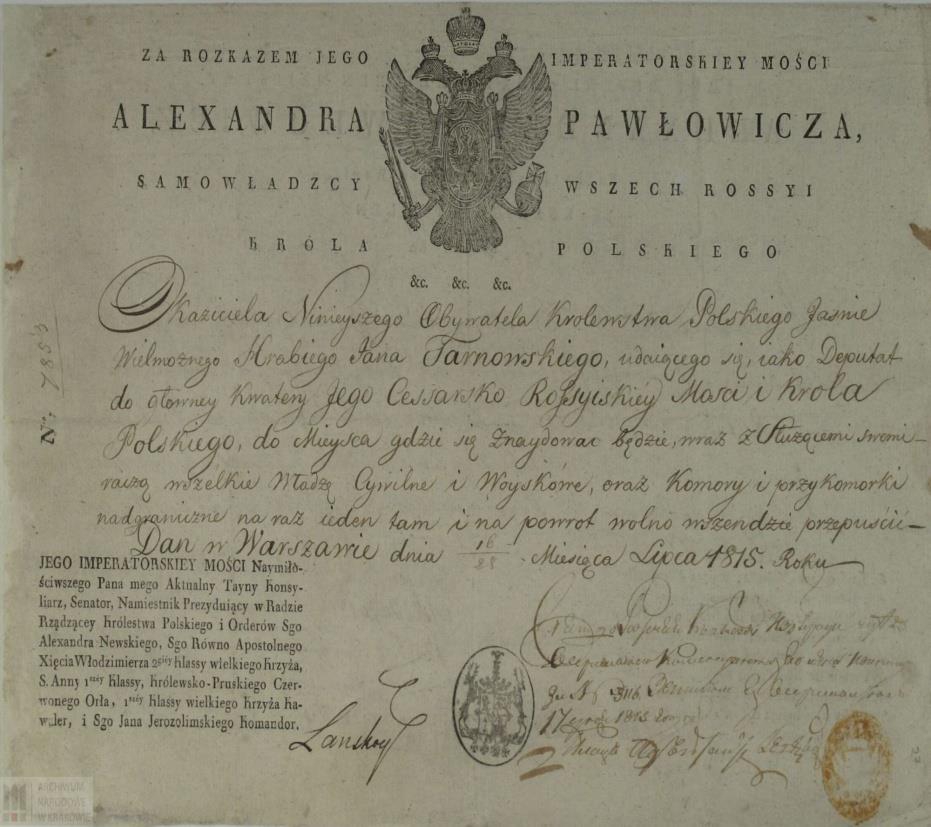 ZA ROZKAZEM JEGO IMPERATORSKIEY MOŚCI
ALEXANDRA PAWŁOWICZA,
SAMOWŁADZCY WSZECH ROSSYI
KRÓLA POLSKIEGO
&c. &c. &c.
Okaziciela Ninieyszego Obywatela Krolewstwa Polskiego Jaśnie
Wielmożnego Hrabiego Jana Tarnowskiego, udaiącego się, iako Deputat
do głowney Kwatery Jego Cessarsko Rossyiskiey Mosci i Krola
Polskiego, do Mieysca gdzie się Znaydować będzie, wraz z Służącemi swemi
raczą wszelkie Władzę Cywilne i Woyskówe, oraz Komory i przykomorki
nadgraniczne na raz ieden tam i na powrot wolno wszendzie przepuścić
Dan w Warszawie dnia 16/28 Miesiąca Lipca 1815. Roku
No. 7855
JEGO IMPERATORSKIEY MOŚCI Naymiłó-
ściwszego Pana mego Aktualny Tayny Konsy-
liarz, Senator, Namiestnik Prezyduiący w Radzie
Rządzącey Królestwa Polskiego i Orderów Sgo
Alexandra Newskiego, Sgo Równo Apostolnego
Xięcia Włodzimierza 2giéy klassy wielkiego krzyża,
S. Anny 1széy klassy, Królewsko-Pruskiego Czer-
wonego Orła, 1széy klassy wielkiego krzyża ka-
waler, i Sgo Jana Jerozolimskiego Komandor.
Lanskoy
1815
ARCHIWUM
NARODOWE
W KRAKOWIE